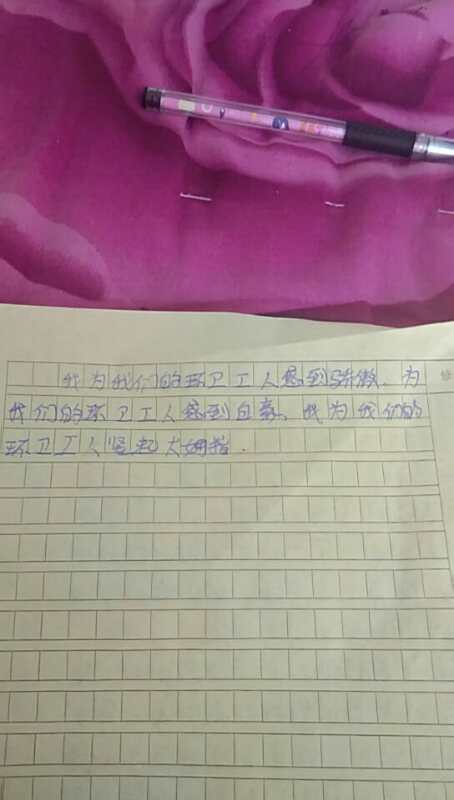 我为我们的环卫工人感到骄傲、为
我们的环卫工人感到自豪、我为我们的
环卫工人竖起大姆指.